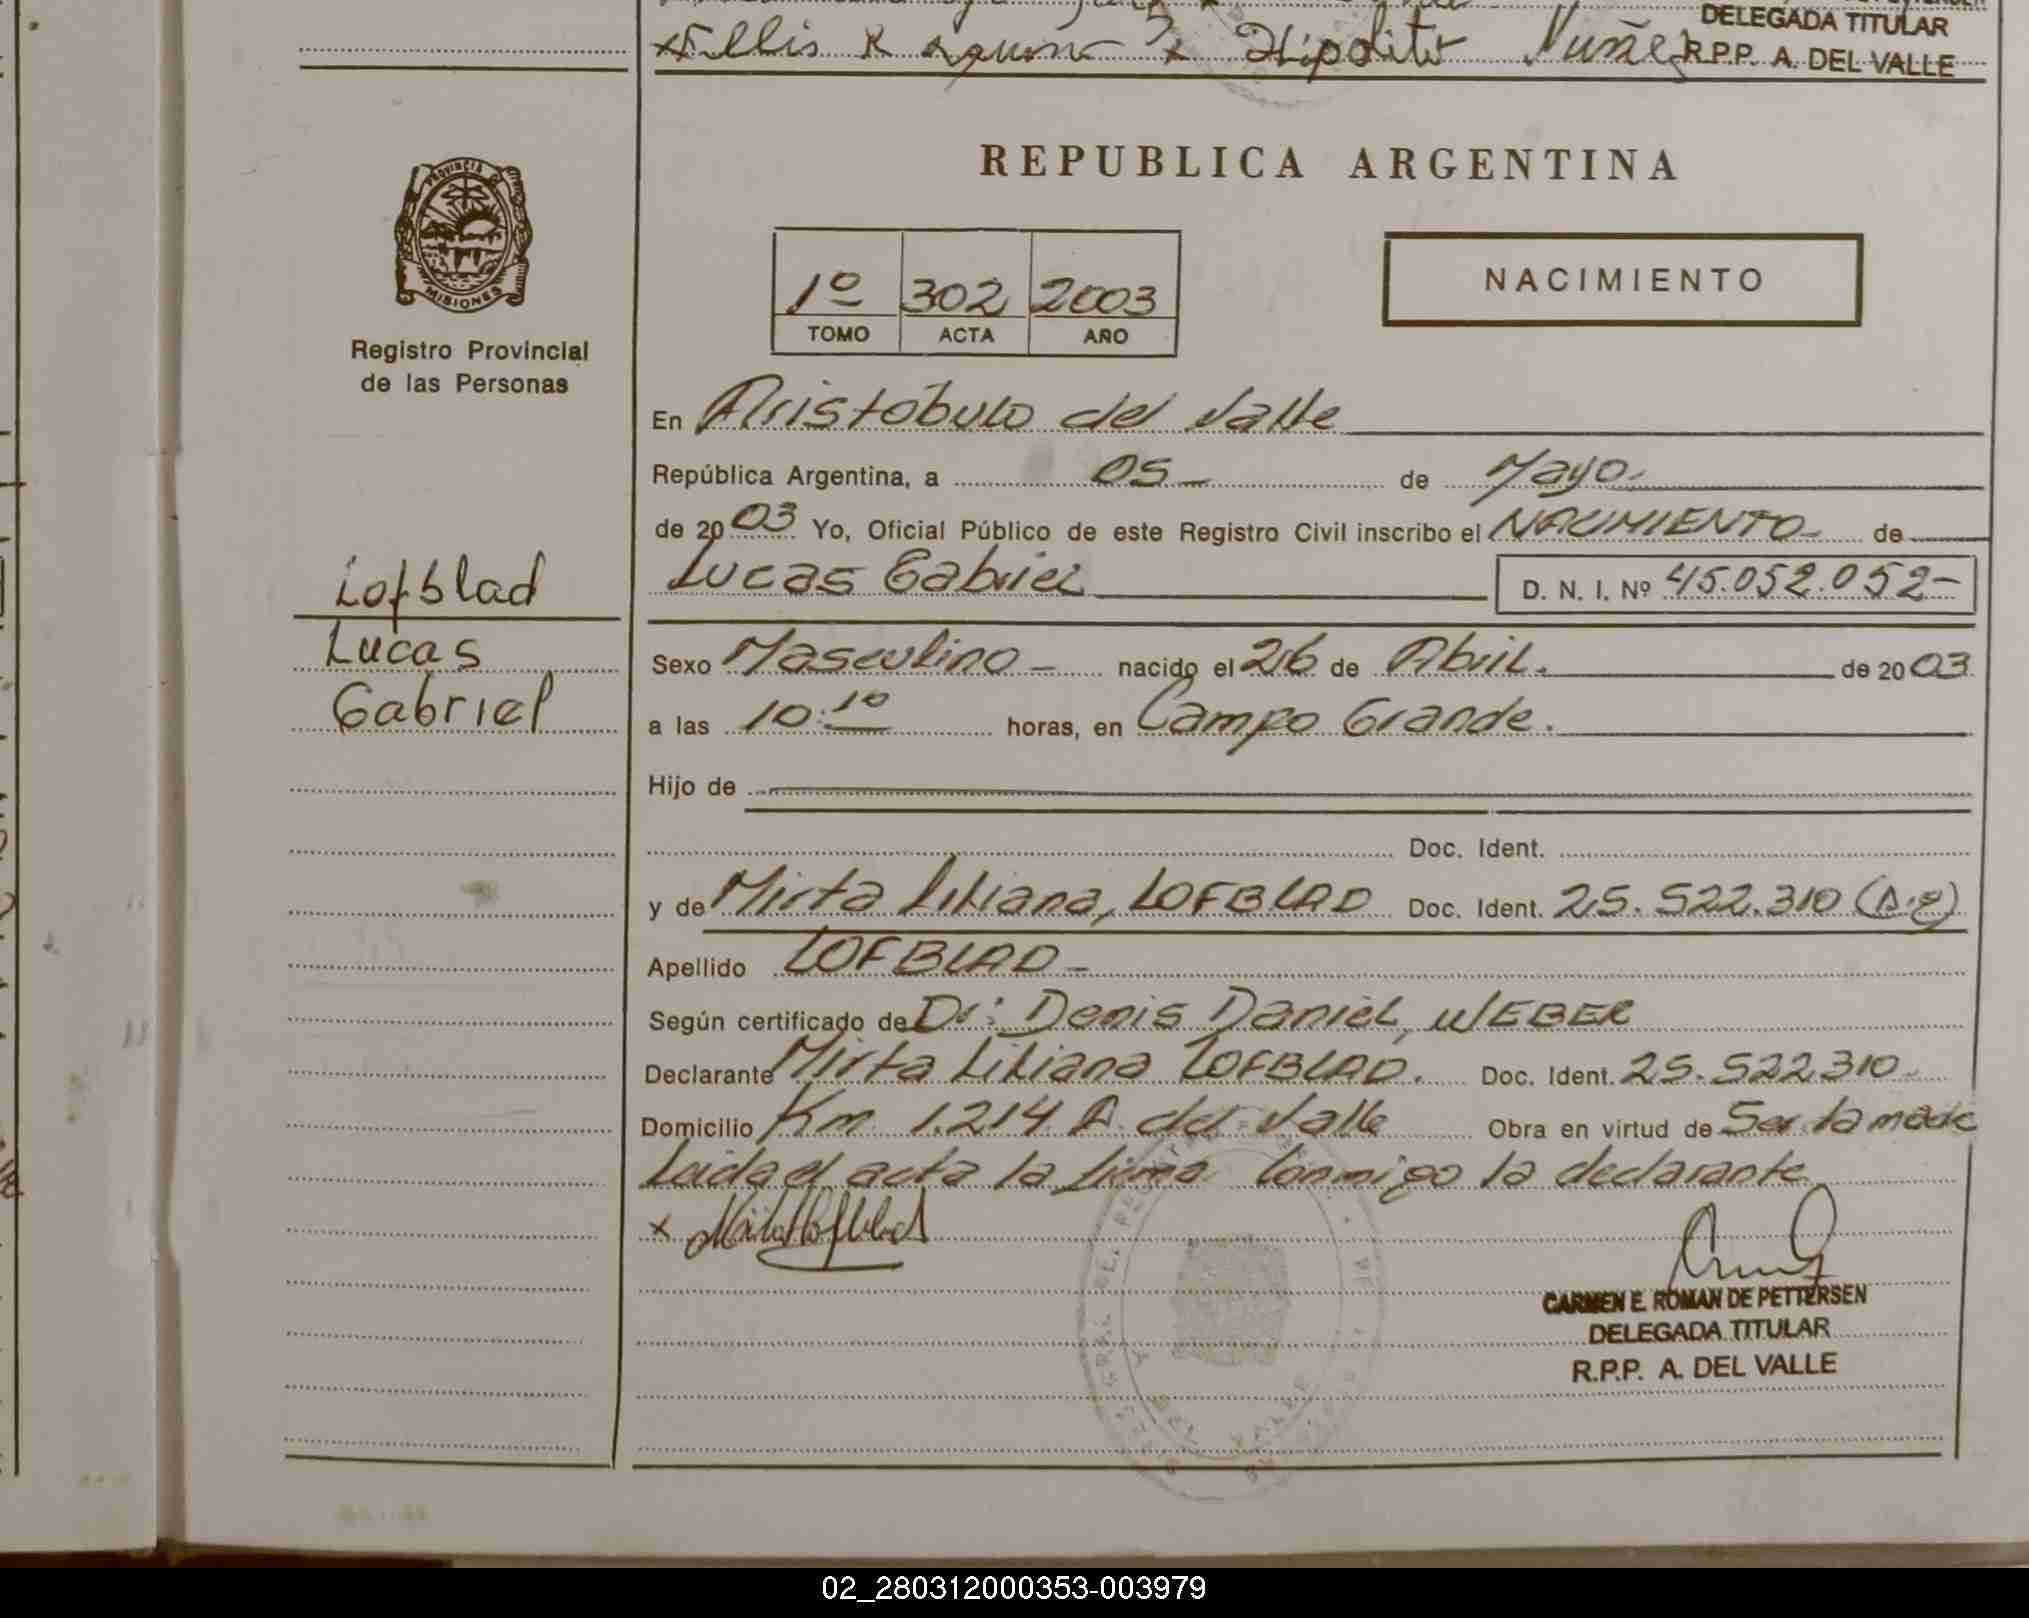 Ellis R Aquino x Hipolito Nuñez
DELEGADA TITULAR
R.P.P. A. DEL VALLE
PROVINCIA DE
MISIONES
Registro Provincial
de las Personas
Lofblad
Lucas
Gabriel
REPUBLICA ARGENTINA
1º 302 2003
TOMO ACTA AÑO
NACIMIENTO
En Aristobulo del Valle
República Argentina, a 05 de Mayo
de 2003 Yo, Oficial Público de este Registro Civil inscribo el NACIMIENTO de
Lucas Gabriel D. N. I. Nº 45.052.052
Sexo Masculino nacido el 26 de Abril. de 2003
a las 10:10 horas, en Campo Grande.
Hijo de
Doc. Ident.
y de Mirta Liliana, LOFBLAD Doc. Ident. 25.522.310
Apellido LOFBLAD
Según certificado de Dr: Denis Daniel, WEBER
Declarante Mirta Liliana LOFBLAD. Doc. Ident. 25.522.310
Domicilio Km 1.214 A. del Valle Obra en virtud de Ser la madre
Leida el acta la firma conmigo la declarante
x
CARMEN E. ROMAN DE PETTERSEN
DELEGADA TITULAR
R.P.P. A. DEL VALLE
02_280312000353-003979